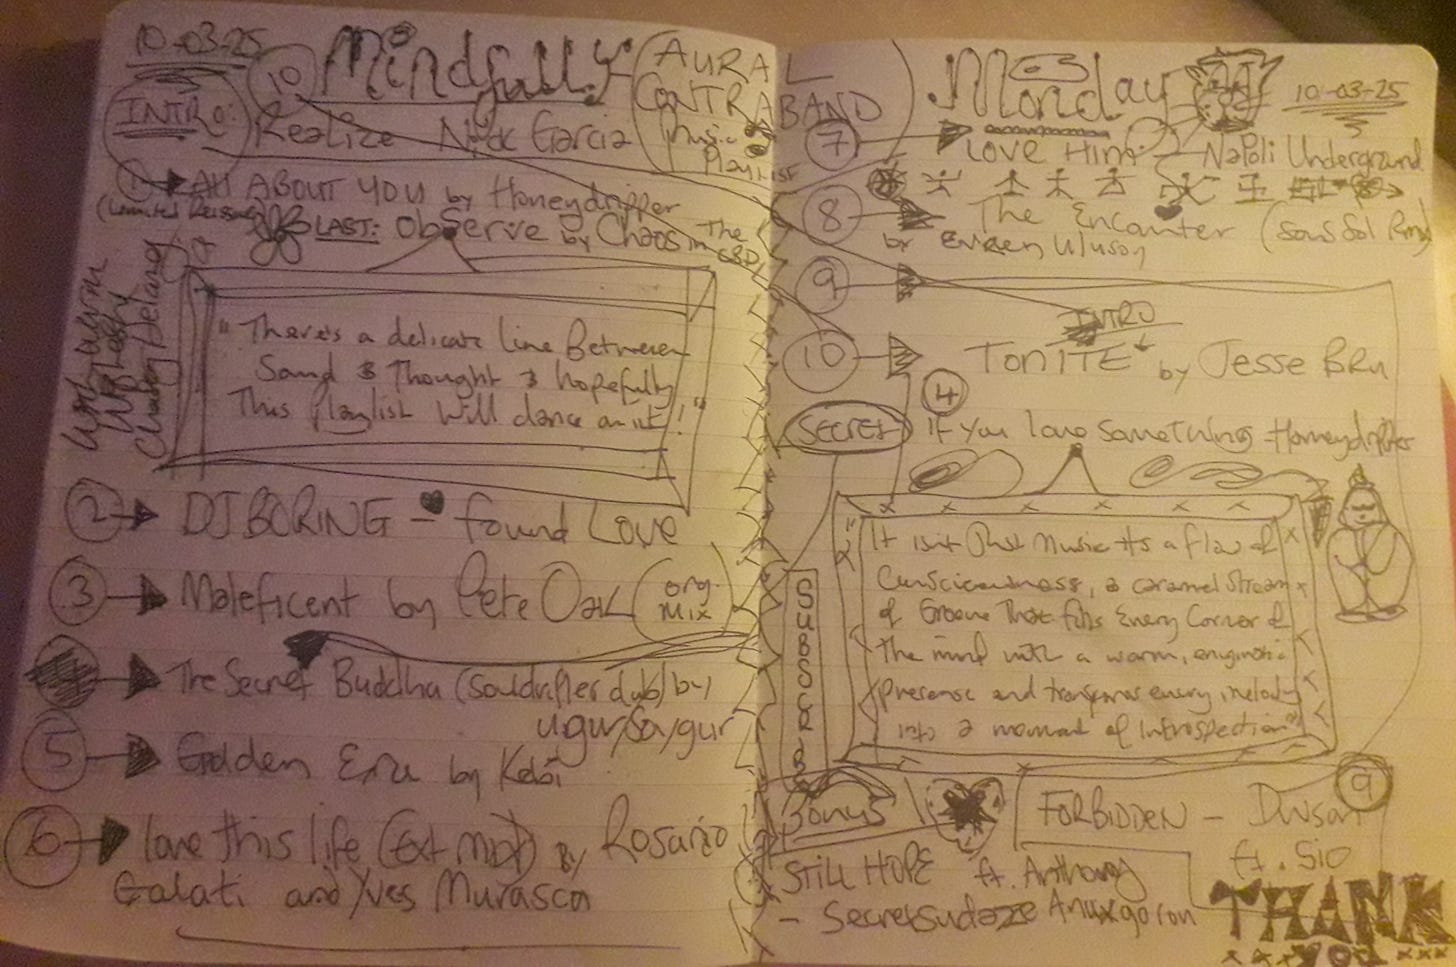 10-03-25
10 Mindfully
AURAL
CONTRABAND
Music
Playlist
INTRO:
Realize Nick Garcia
1 All ABOUT YOU by Honeydripper
LAST: Observe by Chaos in the CBD
"There's a delicate line Between
Sound & Thought & hopefully
This playlist will dance on it!"
2 DJ BORING - Found Love
3 Maleficent by Pete Oak (org. Mix)
The Secret Buddha (Souldrifter dub) by
ugur/Saygur
5 Golden Era by Kebi
6 love this life (Ext mix) By Rosario
Galati and Yves Murasca
Monday
10-03-25
7 Love Hina - Napoli Underground
8 The Encanter (Sous Sol Rmx)
by Evren Ulusoy
9
INTRO
10 TONITE by Jesse Bru
4
Secret If you love Something - Honeydripper
"It isn't Just Music its a flow of
Consciousness, a caramel stream
of Groove That fills Every Corner of
the mind with a warm, enigmatic
presence and transforms every melody
into a moment of Introspection"
SUBSCRIBE
9
Bonus
FORBIDDEN - Dwson
ft. Sio
STILL HOPE ft. Anthony
- Secretsundaze
THANK
YOU